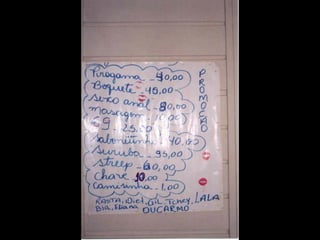 Pirogama - 40,00
Boquete - 45,00
sexo anal - 80,00
massagem 10,00
69 - 25,00
sabonetinho 40,00
suruba - 95,00
streep - 60,00
chave 10,00
camisinha - 1,00
PROMOCÃO
RASTA, Diel, Gil, Tchey, LALA
Bia, Eliana
DUCARMO